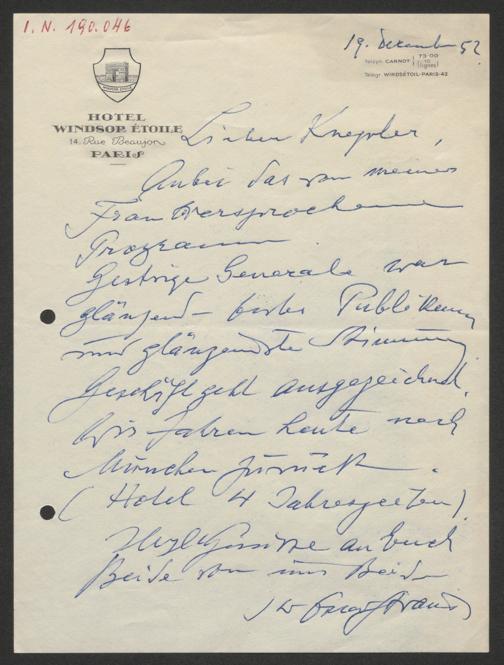 I. N. 190.046
19. Dezember 52
Téléph. CARNOT 73-00
10
(lignes)
Télégr. WINDSÉTOIL-PARIS-42
HOTEL
WINDSOR ÉTOILE
14, Rue Beaujon
PARIS
Lieber Knepler,
Anbei das von meiner
Frau versprochene
Programm.
Gestrige Generale war
glänzend – bestes Publikum
und glänzendste Stimmung
Geschäft geht ausgezeichnet.
Wir fahren heute nach
München zurück.
(Hotel 4 Jahreszeiten).
Herzl. Grüsse an Euch
Beide von uns Beiden
Ihr Oscar Straus